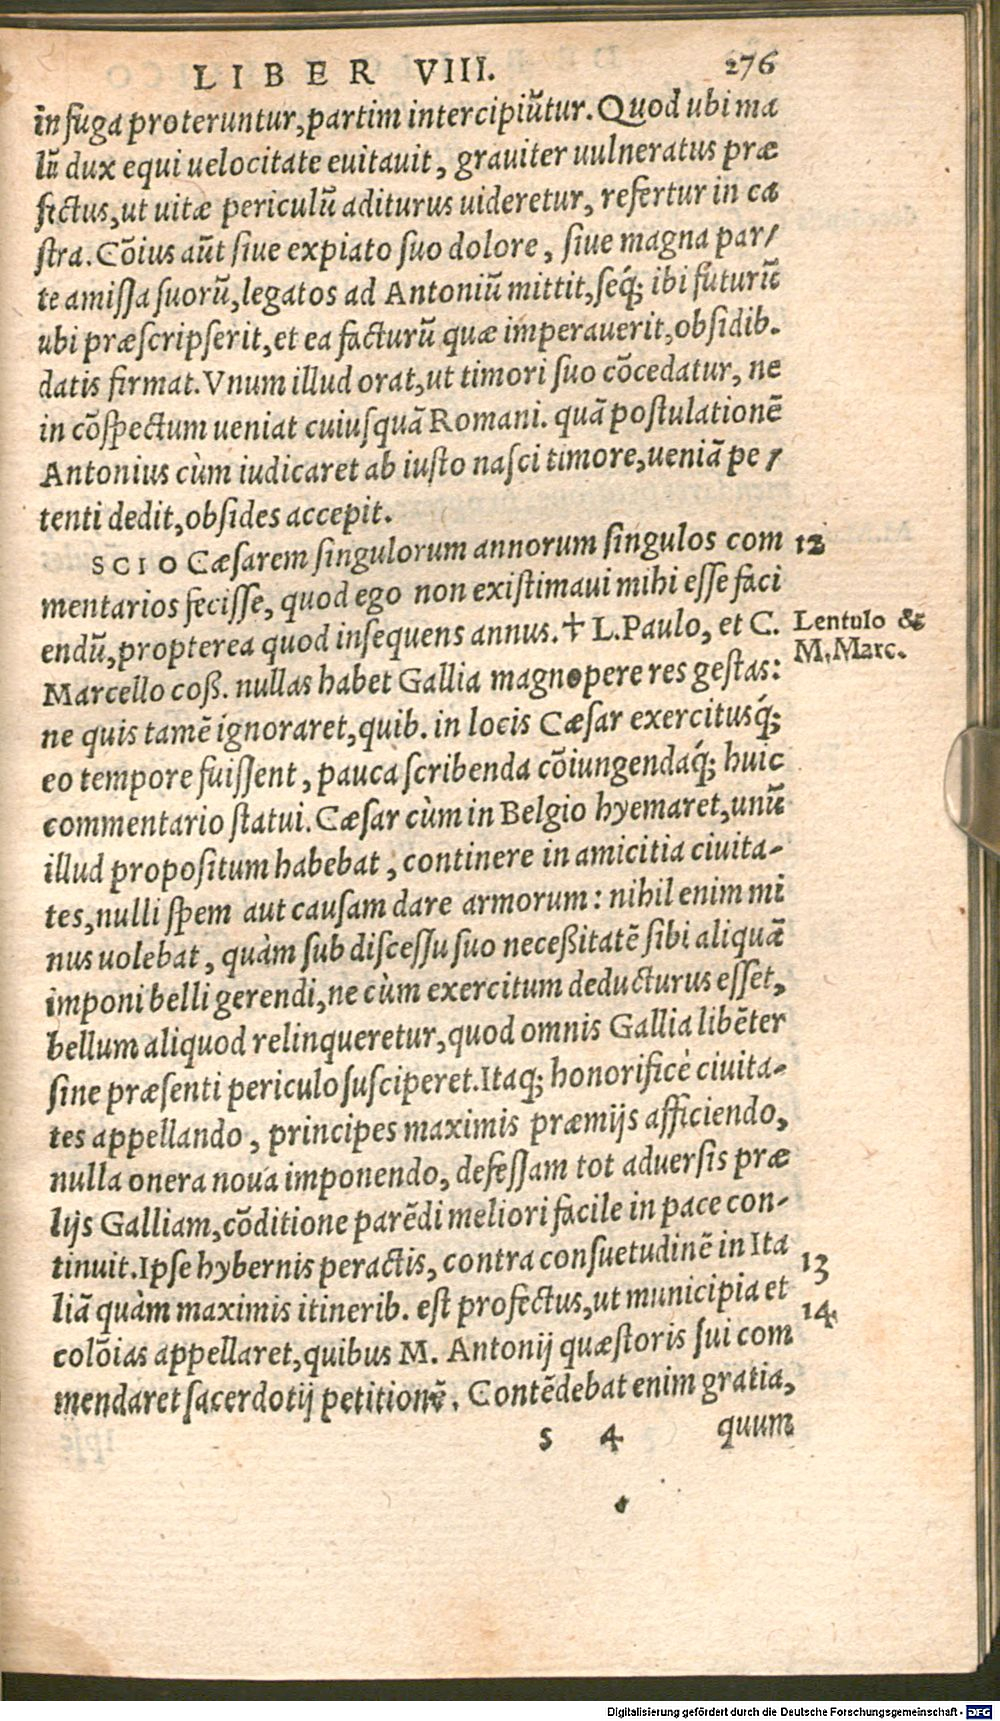 LIBER VIII. 276
in fuga proteruntur, partim intercipiũtur. Quod ubi ma
lũ dux equi uelocitate euitauit, grauiter uulneratus præ
fectus, ut uitæ periculũ aditurus uideretur, refertur in ca
stra. Cõius aũt siue expiato suo dolore, siue magna par/
te amissa suorũ, legatos ad Antoniũ mittit, seq́; ibi futurũ
ubi præscripserit, et ea facturũ quæ imperauerit, obsidib.
datis firmat. Vnum illud orat, ut timori suo cõcedatur, ne
in cõspectum ueniat cuiusquã Romani. quã postulationẽ
Antonius cùm iudicaret ab iusto nasci timore, ueniã pe/
tenti dedit, obsides accepit.
SCIO Cæsarem singulorum annorum singulos com 12
mentarios fecisse, quod ego non existimaui mihi esse faci
endũ, propterea quod insequens annus. † L. Paulo, et C. Lentulo &
Marcello coß. nullas habet Gallia magnopere res gestas: M. Marc.
ne quis tamẽ ignoraret, quib. in locis Cæsar exercitusq́;
eo tempore fuissent, pauca scribenda cõiungendaq́; huic
commentario statui. Cæsar cùm in Belgio hyemaret, unũ
illud propositum habebat, continere in amicitia ciuita-
tes, nulli spem aut causam dare armorum: nihil enim mi
nus uolebat, quàm sub discessu suo neceßitatẽ sibi aliquã
imponi belli gerendi, ne cùm exercitum deducturus esset,
bellum aliquod relinqueretur, quod omnis Gallia libẽter
sine præsenti periculo susciperet. Itaq; honorificè ciuita-
tes appellando, principes maximis præmijs afficiendo,
nulla onera noua imponendo, defessam tot aduersis præ
lijs Galliam, cõditione parẽdi meliori facile in pace con-
tinuit. Ipse hybernis peractis, contra consuetudinẽ in Ita 13
liã quàm maximis itinerib. est profectus, ut municipia et 14.
colõias appellaret, quibus M. Antonij quæstoris sui com
mendaret sacerdotij petitionẽ. Contẽdebat enim gratia,
s 4 quum
Digitalisierung gefördert durch die Deutsche Forschungsgemeinschaft - DFG